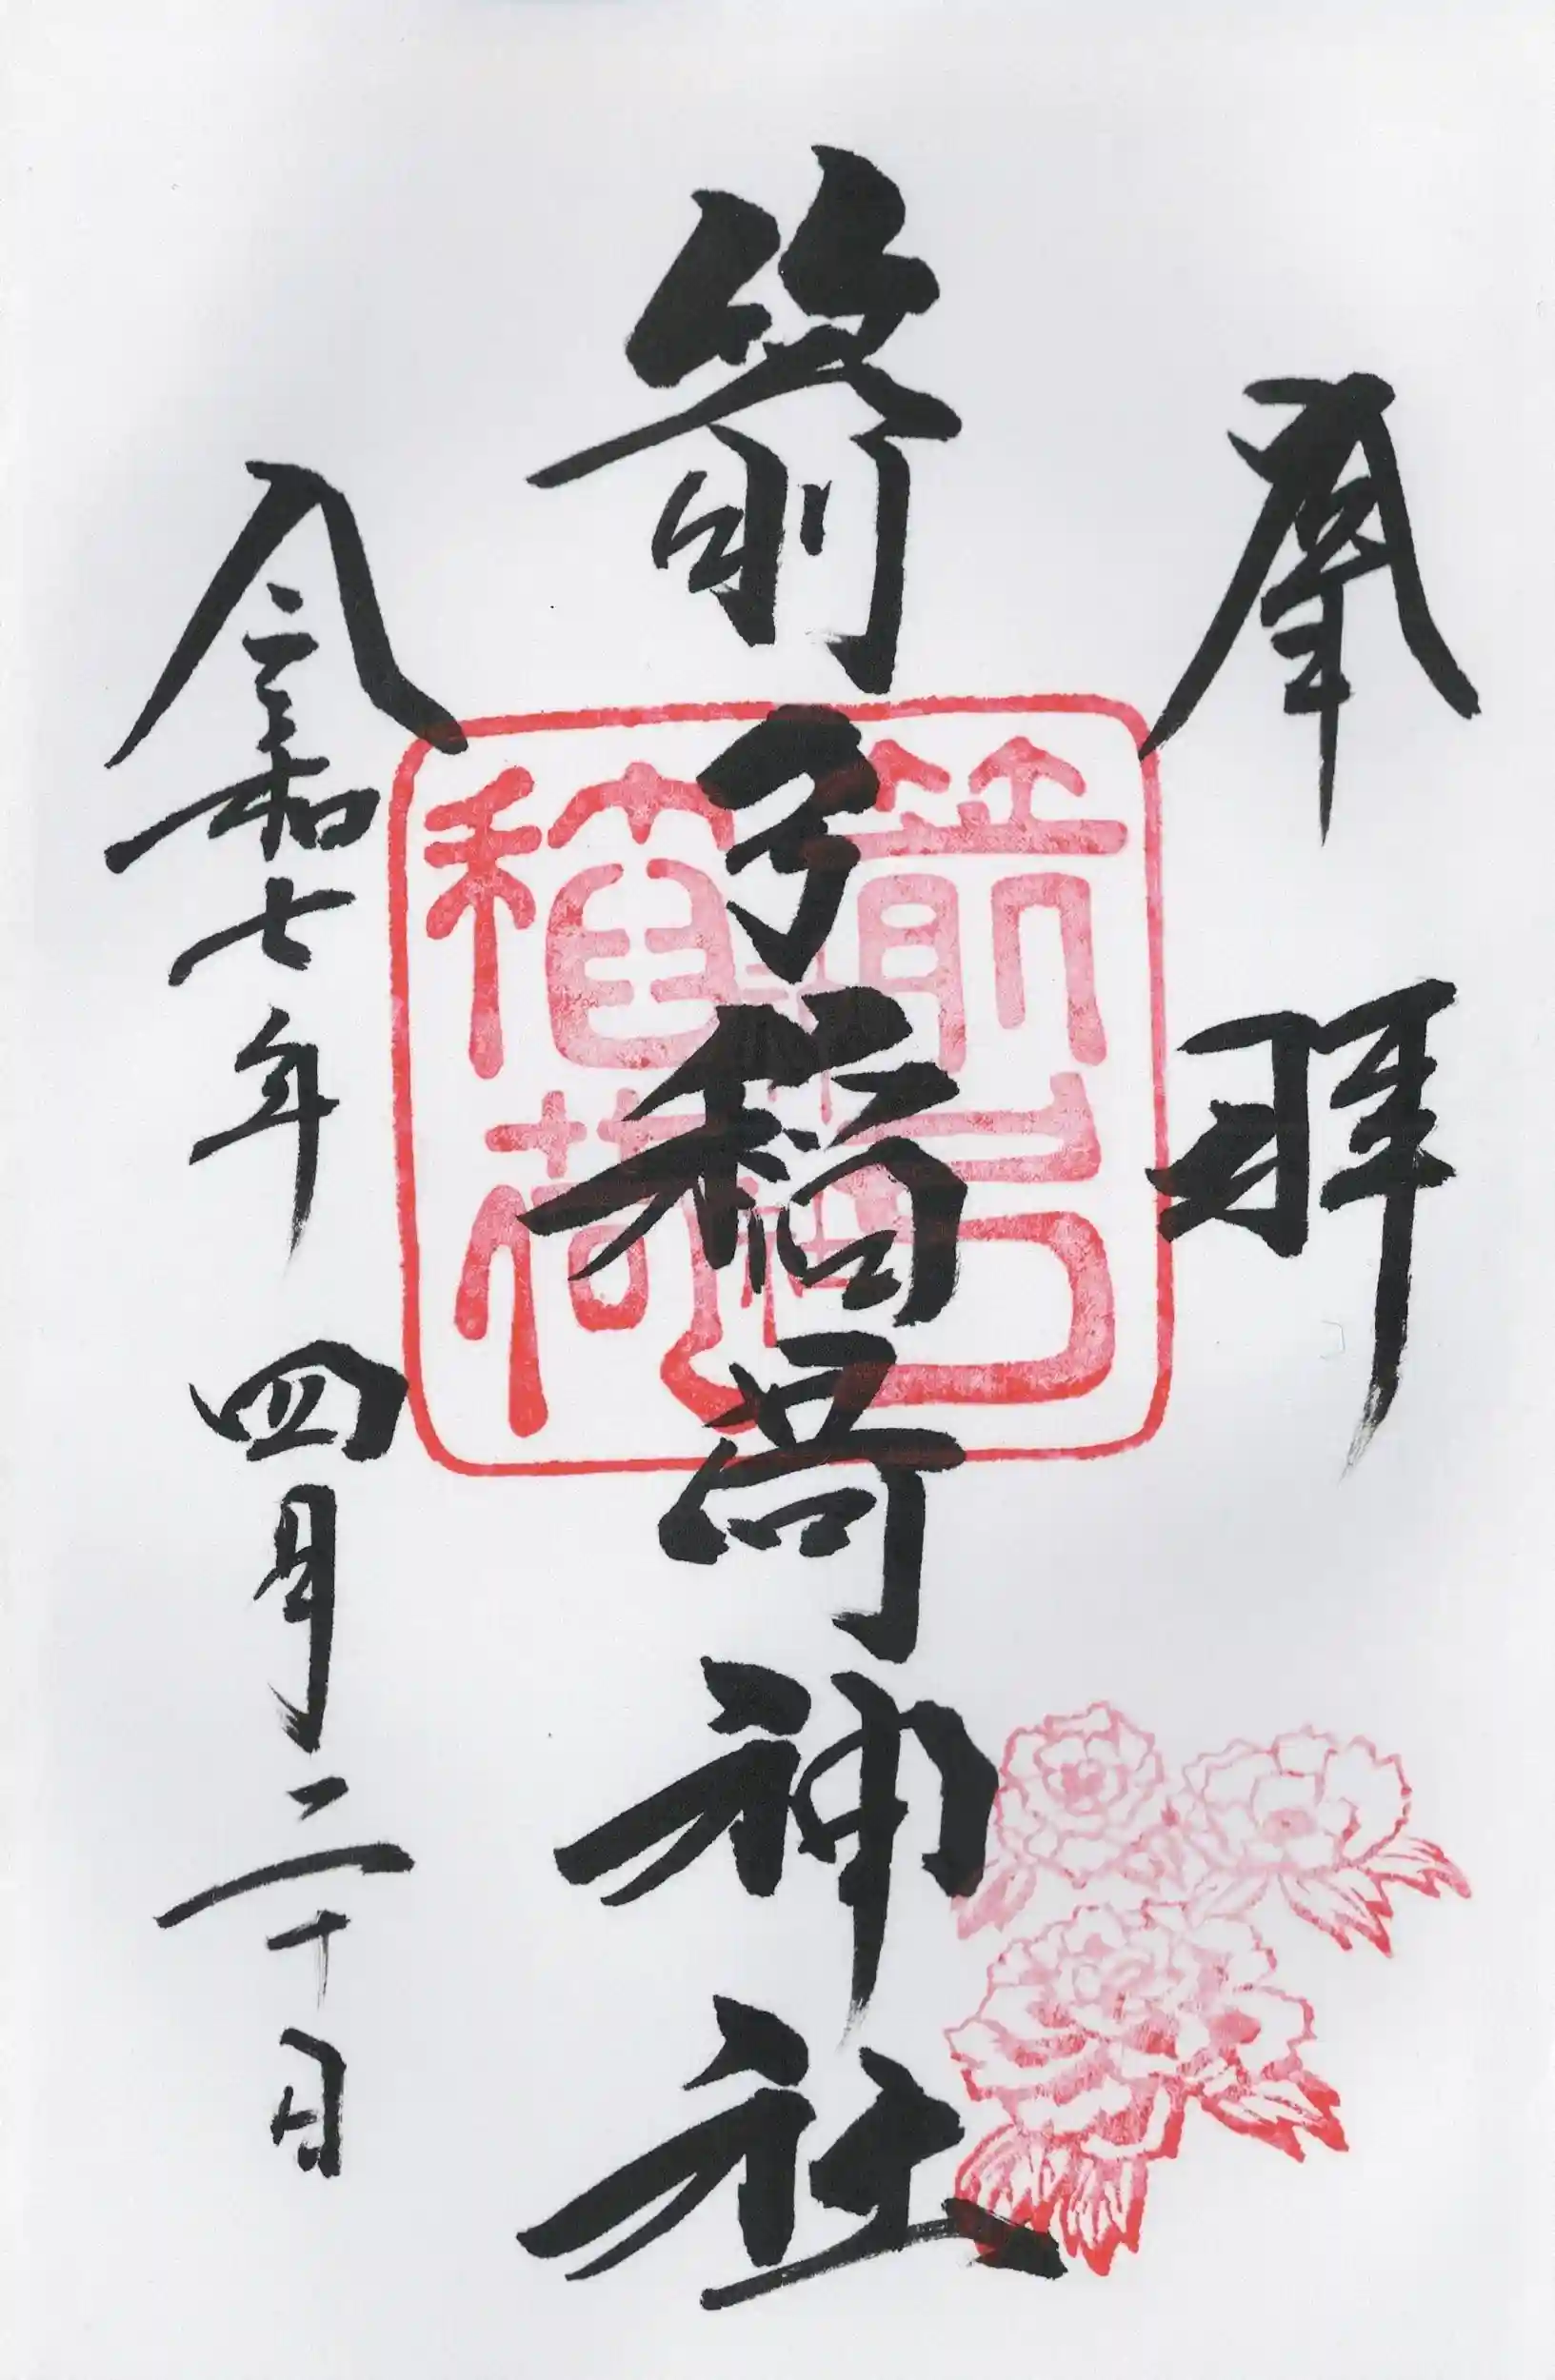 奉拝
箭弓稲荷神社
令和七年四月二十日
箭弓稲荷神社